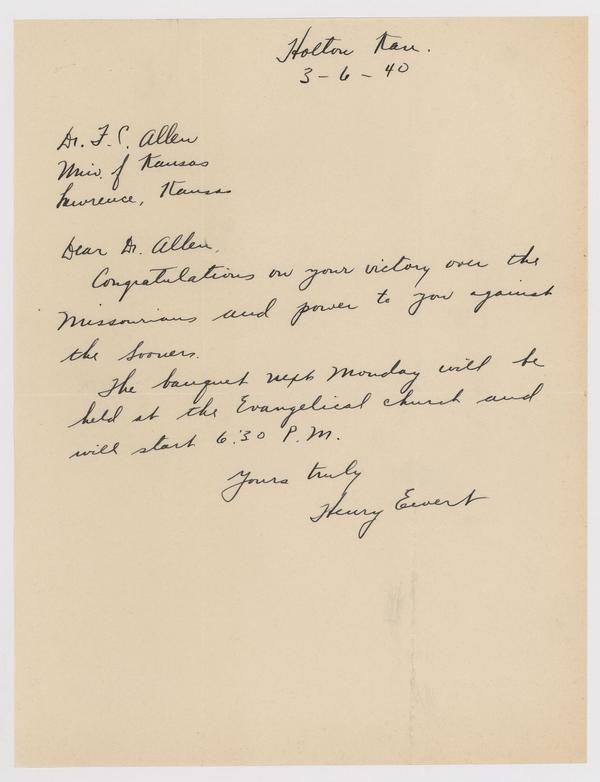 Holton Kan.
3-6-40
Dr. F. C. Allen
Univ. of Kansas
Lawrence, Kansas
Dear Dr. Allen,
Congratulations on your victory over the
Missourians and power to you against
the Sooners.
The banquet next Monday will be
held at the Evangelical church and
will start 6:30 P.M.
Yours truly
Henry Eivert